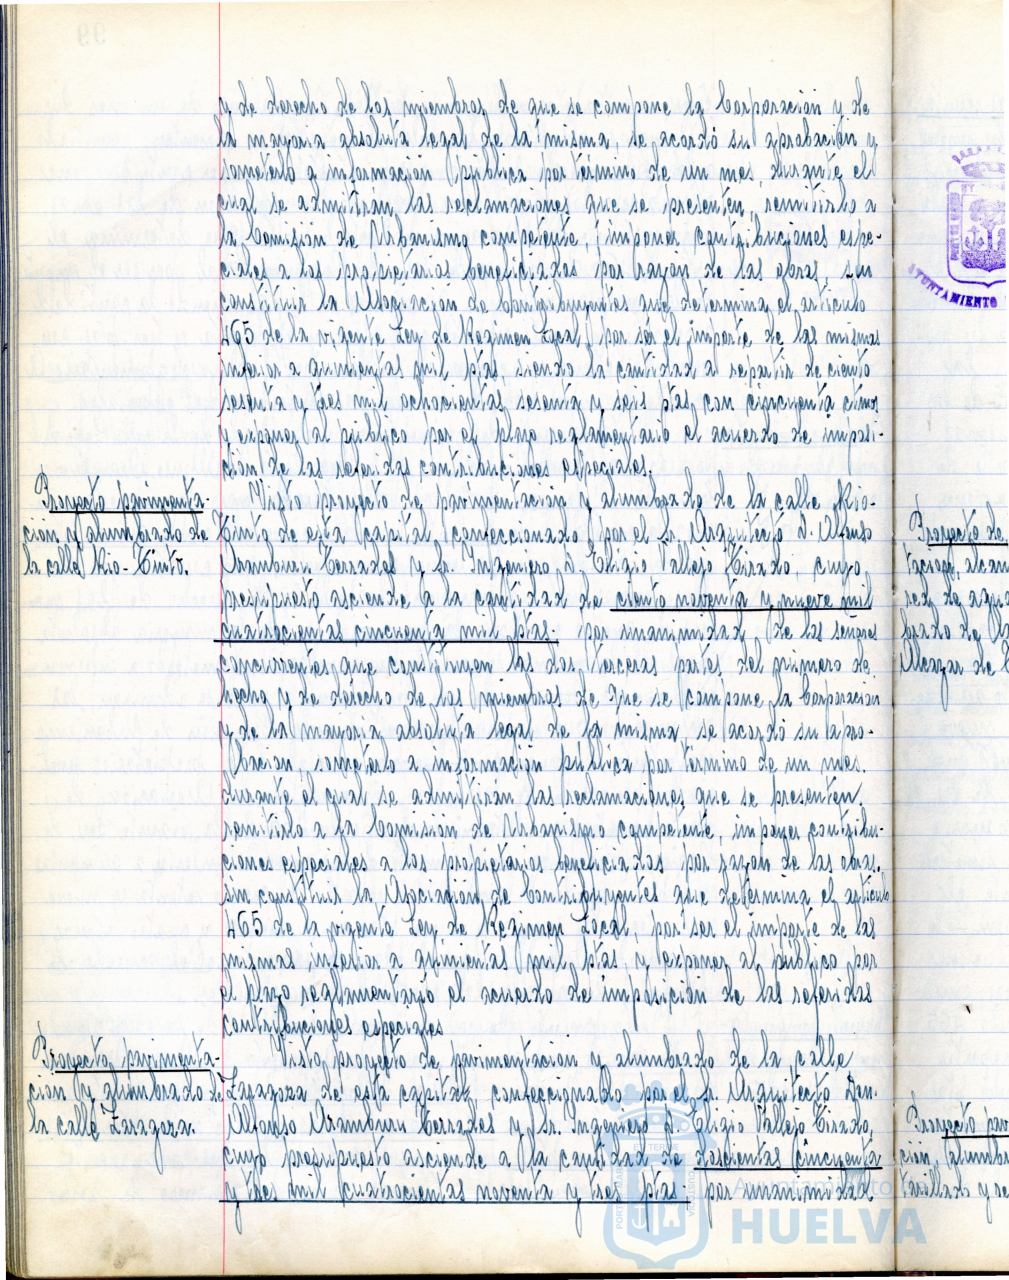 y de derecho de los miembros de que se compone la Corporación y de
la mayoría absoluta legal de la misma, se acordó su aprobación y
someterlo a información pública por término de un mes, durante el
cual se admitirán las reclamaciones que se presenten, remitirlo a
la Comisión de Urbanismo competente, imponer contribuciones espe-
ciales a los propietarios beneficiados por razón de las obras, sin
constituir la Asociación de Contribuyentes que determina el artículo
465 de la vigente Ley de Regimen Local, por ser el importe de las mismas
inferior a quinientas mil ptas siendo la cantidad a repartir de ciento
sesenta y tres mil ochocientas sesenta y seis ptas, con cincuenta ctmos
y exponer al público por el plazo reglamentario el acuerdo de imposi-
ción de las referidas contribuciones especiales.
Proyecto pavimenta-
ción y alumbrado de
la calle Rio-Tinto.
Visto proyecto de pavimentación y alumbrado de la calle Rio-
Tinto de esta capital confeccionado por el Sr. Arquitecto D. Alfonso
Aramburu Terrades y Sr. Ingeniero D. Eligio Vallejo Tirado, cuyo
presupuesto asciende a la cantidad de ciento noventa y nueve mil
cuatrocientas cincuenta mil ptas. por unanimidad, de los señores
concurrentes que constituyen las dos terceras partes del número de
hecho y de derecho de los miembros de que se compone la Corporación
y de la mayoría absoluta legal de la misma, se acordó su apro-
bación, someterlo a información pública por término de un mes.
durante el cual se admitirán las reclamaciones que se presenten.
remitirlo a la Comisión de Urbanismo competente, imponer contribu-
ciones especiales a los propietarios beneficiados por razón de las obras.
sin constituir la Asociación de Contribuyentes que determina el artículo
465 de la vigente Ley de Regimen Local, por ser el importe de las
mismas inferior a quinientas mil ptas, y exponer al público por
el plazo reglamentario el acuerdo de imposición de las referidas
contribuciones especiales
Proyecto pavimenta-
ción y alumbrado de
la calle Zaragoza.
Visto proyecto de pavimentación y alumbrado de la calle
Zaragoza de esta capital confeccionado por el Sr. Arquitecto Don
Alfonso Aramburu Terrades y Sr. Ingeniero D. Eligio Vallejo Tirado,
cuyo presupuesto asciende a la cantidad de doscientas cincuenta
y tres mil cuatrocientas noventa y tres ptas. por unanimidad
Proyecto de
red de agua
brado de
Alcazar de
Proyecto pav
ción, alumbra
AYUNTAMIENTO
Ayuntamiento
HUELVA